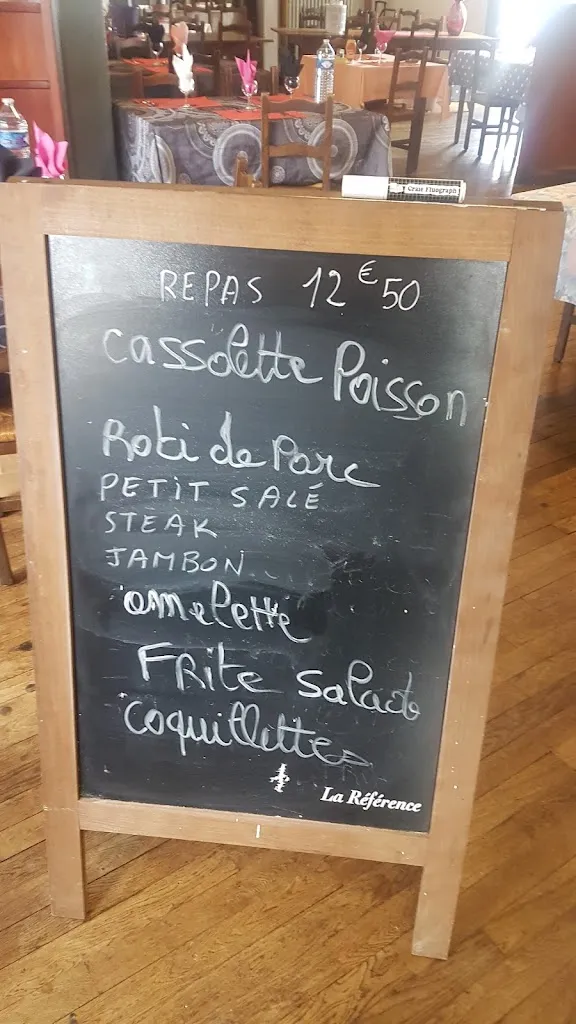 Craie Fluograph
REPAS 12€50
Cassolette Poisson
Roti de Porc
PETIT SALÉ
STEAK
JAMBON
omelette
FRite salade
coquillettes
La Référence